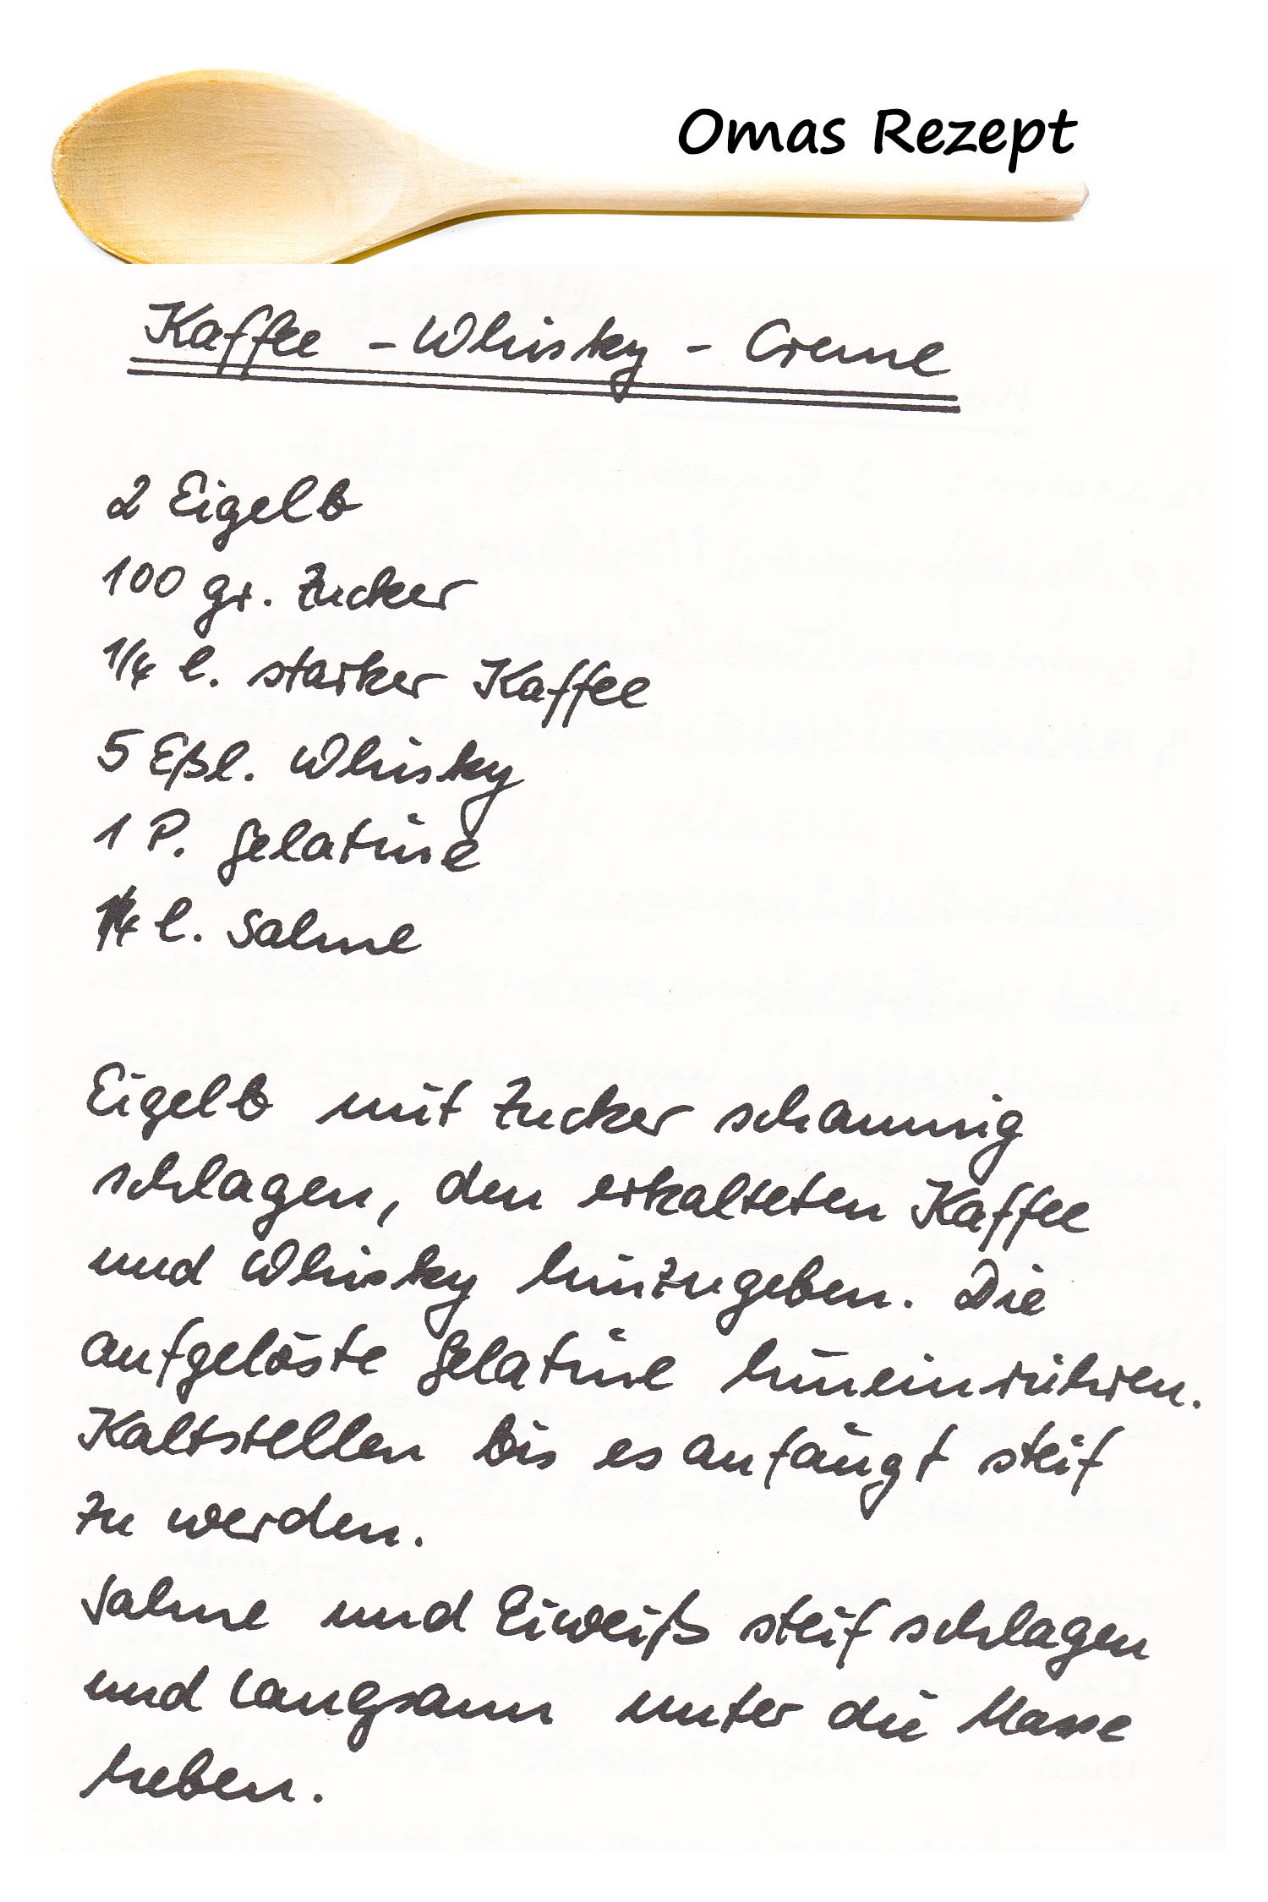 Omas Rezept
Kaffee - Whisky - Creme
2 Eigelb
100 gr. Zucker
1/4 l. starker Kaffee
5 Eßl. Whisky
1 P. Gelatine
1/4 l. Sahne
Eigelb mit Zucker schaumig
schlagen, den erkalteten Kaffee
und Whisky hinzugeben. Die
aufgelöste Gelatine hineinrühren.
Kaltstellen bis es anfängt steif
zu werden.
Sahne und Eiweiß steif schlagen
und langsam unter die Masse
heben.